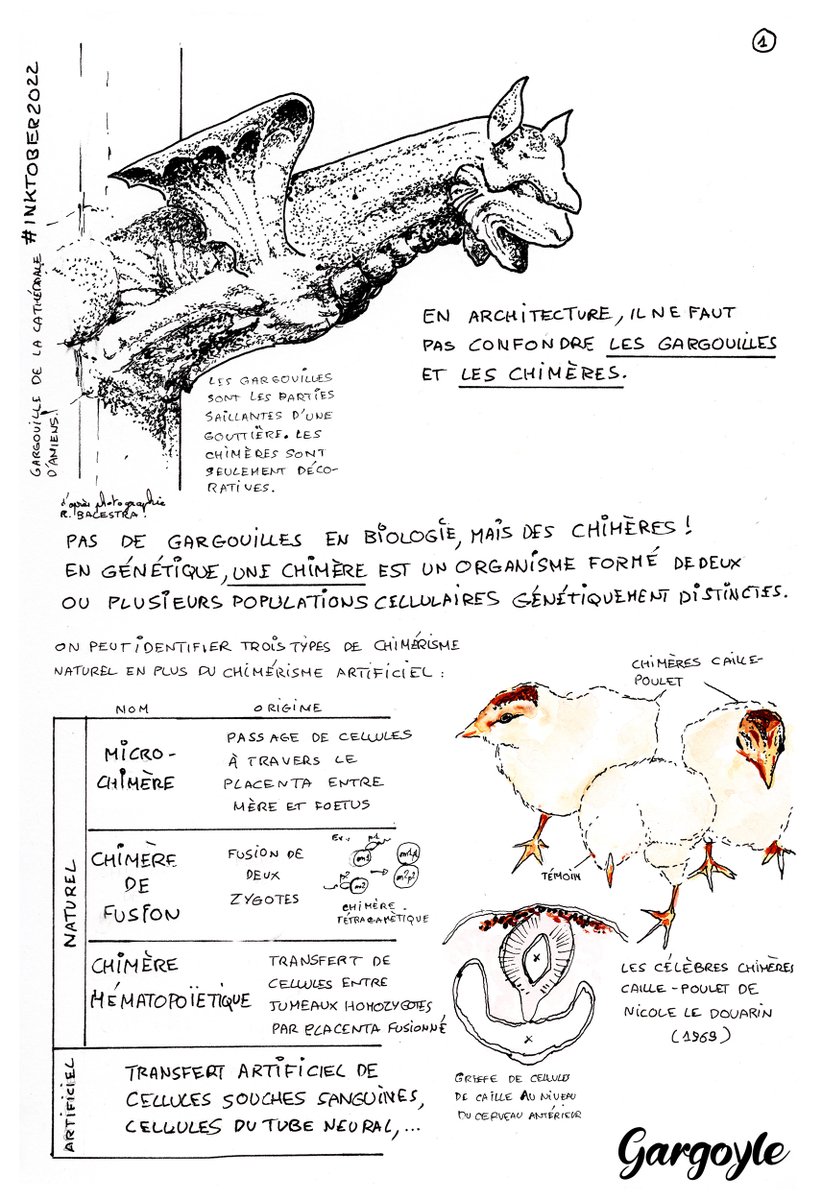 1
#INKTOBER2022
GARGOUILLE DE LA CATHÉDRALE
D'AMIENS!
EN ARCHITECTURE, IL NE FAUT
PAS CONFONDRE LES GARGOUILLES
ET LES CHIMÈRES.
LES GARGOUILLES
SONT LES PARTIES
SAILLANTES D'UNE
GOUTTIÈRE. LES
CHIMÈRES SONT
SEULEMENT DÉCO-
RATIVES.
d'après photographie
R. BALESTRA.
PAS DE GARGOUILLES EN BIOLOGIE, MAIS DES CHIMÈRES!
EN GÉNÉTIQUE, UNE CHIMÈRE EST UN ORGANISME FORMÉ DE DEUX
OU PLUSIEURS POPULATIONS CELLULAIRES GÉNÉTIQUEMENT DISTINCTES.
ON PEUT IDENTIFIER TROIS TYPES DE CHIMÉRISME
NATUREL EN PLUS DU CHIMÉRISME ARTIFICIEL :
NOM ORIGINE
NATUREL
MICRO-
CHIMÈRE
PASSAGE DE CELLULES
À TRAVERS LE
PLACENTA ENTRE
MÈRE ET FOETUS
CHIMÈRE
DE
FUSION
FUSION DE
DEUX
ZYGOTES
Ex.
CHIMÈRE
TÉTRAGAMÉTIQUE
CHIMÈRE
HÉMATOPOÏETIQUE
TRANSFERT DE
CELLULES ENTRE
JUMEAUX HOMOZYGOTES
PAR PLACENTA FUSIONNÉ
ARTIFICIEL
TRANSFERT ARTIFICIEL DE
CELLULES SOUCHES SANGUINES,
CELLULES DU TUBE NEURAL,...
CHIMÈRES CAILLE-
POULET
TÉMOIN
x
x
LES CÉLÈBRES CHIMÈRES
CAILLE-POULET DE
NICOLE LE DOUARIN
(1969)
GREFFE DE CELLULES
DE CAILLE AU NIVEAU
DU CERVEAU ANTÉRIEUR
Gargoyle